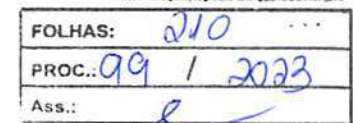 FOLHAS: 210
PROC.: 99 / 2023
Ass.: